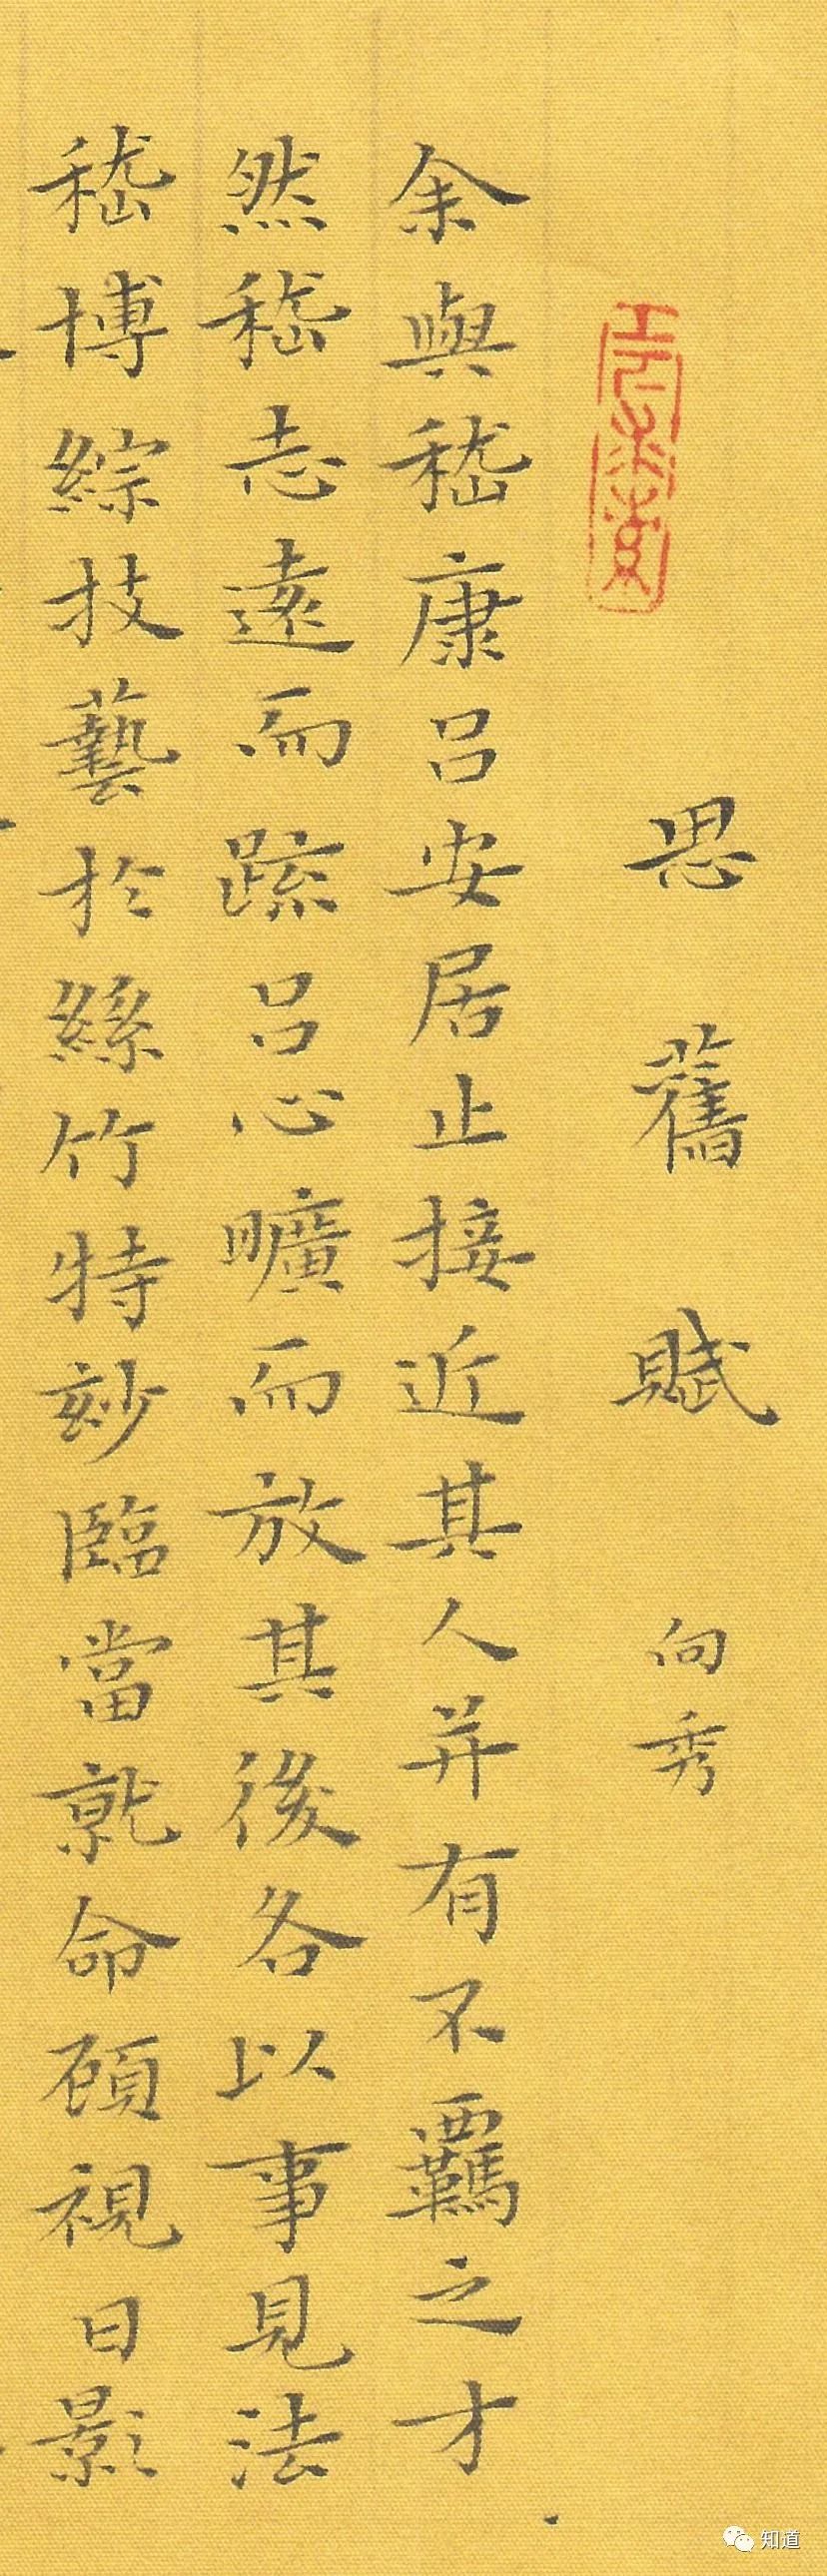 思舊賦 向秀
余與嵇康呂安居止接近其人并有不羈之才
然嵇志遠而踈呂心曠而放其後各以事見法
嵇博綜技藝於絲竹特妙臨當就命顧視日影
知道